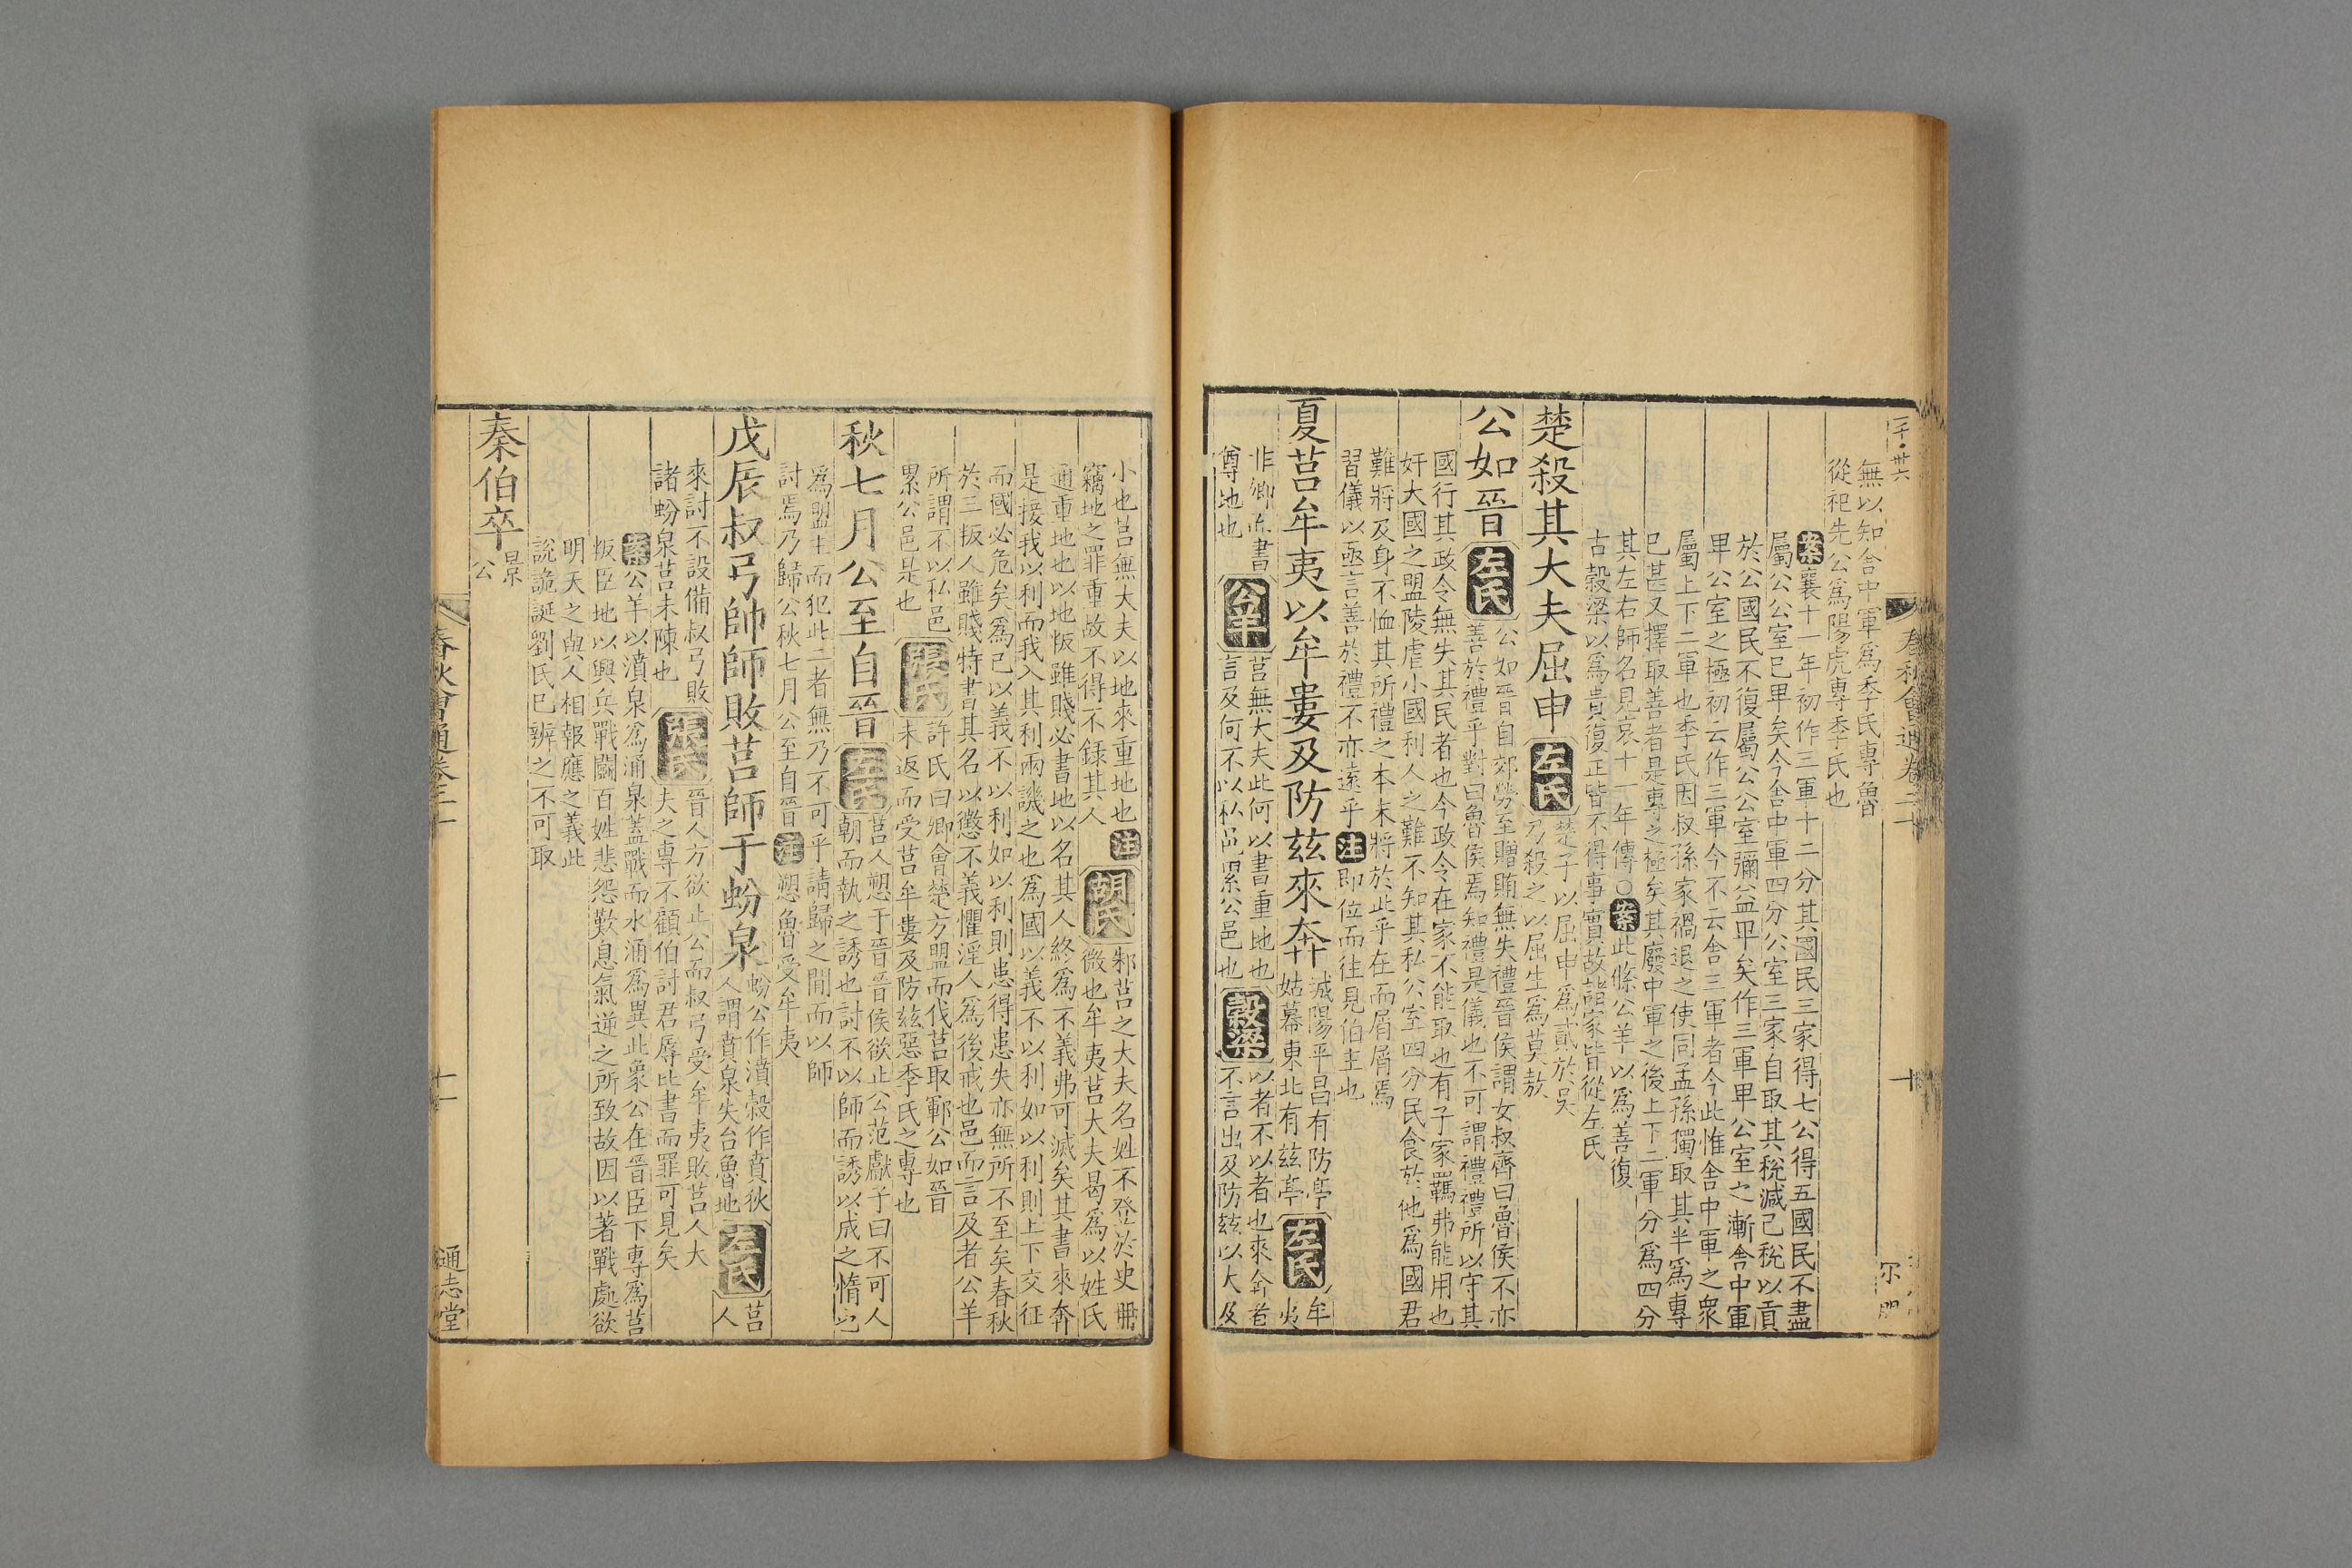 無以知舍中軍爲季氏專魯
從祀先公爲陽虎專季氏也
案襄十一年初作三軍十二分其國民三家得七公得五國民不盡
屬公公室已卑矣今舍中軍四分公室三家自取其稅減己稅以貢
於公國民不復屬公公室彌益卑矣作三軍卑公室之漸舍中軍
卑公室之極初云作三軍今不云舍三軍者今此惟舍中軍之衆
屬上下二軍也季氏因叔孫家禍退之使同孟孫獨取其半爲專
已甚又擇取善者是專之極矣其廢中軍之後上下二軍分爲四分
其左右師名見哀十一年傳○案此條公羊以爲善復
古穀梁以爲貴復正皆不得事實故諸家皆從左氏
楚殺其大夫屈申 左氏 楚子以屈申爲貳於吳
乃殺之以屈生爲莫敖
公如晉 左氏 公如晉自郊勞至贈賄無失禮晉侯謂女叔齊曰魯侯不亦
善於禮乎對曰魯侯焉知禮是儀也不可謂禮禮所以守其
國行其政令無失其民者也今政令在家不能取也有子家羈弗能用也
奸大國之盟陵虐小國利人之難不知其私公室四分民食於他爲國君
難將及身不恤其所禮之本末將於此乎在而屑屑焉
習儀以亟言善於禮不亦遠乎 注 即位而往見伯主也
夏莒牟夷以牟婁及防茲來奔 城陽平昌有防亭
姑幕東北有茲亭 左氏 牟夷
非卿而書
尊地也 公羊 莒無大夫此何以書重地也
言及何不以私邑累公邑也 穀梁 以者不以者也來奔者
不言出及防茲以大及
小也莒無大夫以地來重地也
竊地之罪重故不得不錄其人 注 胡氏 邾莒之大夫名姓不登於史冊
微也牟夷莒大夫曷爲以姓氏
通重地也以地叛雖賤必書地以名其人終爲不義弗可滅矣其書來奔
是接我以利而我入其利兩譏之也爲國以義不以利如以利則上下交征
而國必危矣爲己以義不以利如以利則患得患失亦無所不至矣春秋
於三叛人雖賤特書其名以懲不義懼淫人爲後戒也邑而言及者公羊
所謂不以私邑
累公邑是也 張氏 許氏曰卿會楚方盟而伐莒取鄆公如晉
未返而受莒牟婁及防茲惡季氏之專也
秋七月公至自晉 左氏 莒人愬于晉晉侯欲止公范獻子曰不可人
朝而執之誘也討不以師而誘以成之惰也
爲盟主而犯此二者無乃不可乎請歸之閒而以師
討焉乃歸公秋七月公至自晉 注 愬魯受牟夷
戊辰叔弓帥師敗莒師于蚡泉 蚡公作濆穀作賁狄
人謂賁泉失台魯地 左氏 莒人
來討不設備叔弓敗
諸蚡泉莒未陳也 張氏 晉人方欲止公而叔弓受牟夷敗莒人大
夫之專不顧伯討君辱比書而罪可見矣
案公羊以濆泉爲涌泉蓋戰而水涌爲異此象公在晉臣下專爲莒
叛臣地以興兵戰鬭百姓悲怨歎息氣逆之所致故因以著戰處欲
明天之與人相報應之義此
說詭誕劉氏已辨之不可取
秦伯卒 景
公
春秋會通卷二十
十一
通志堂